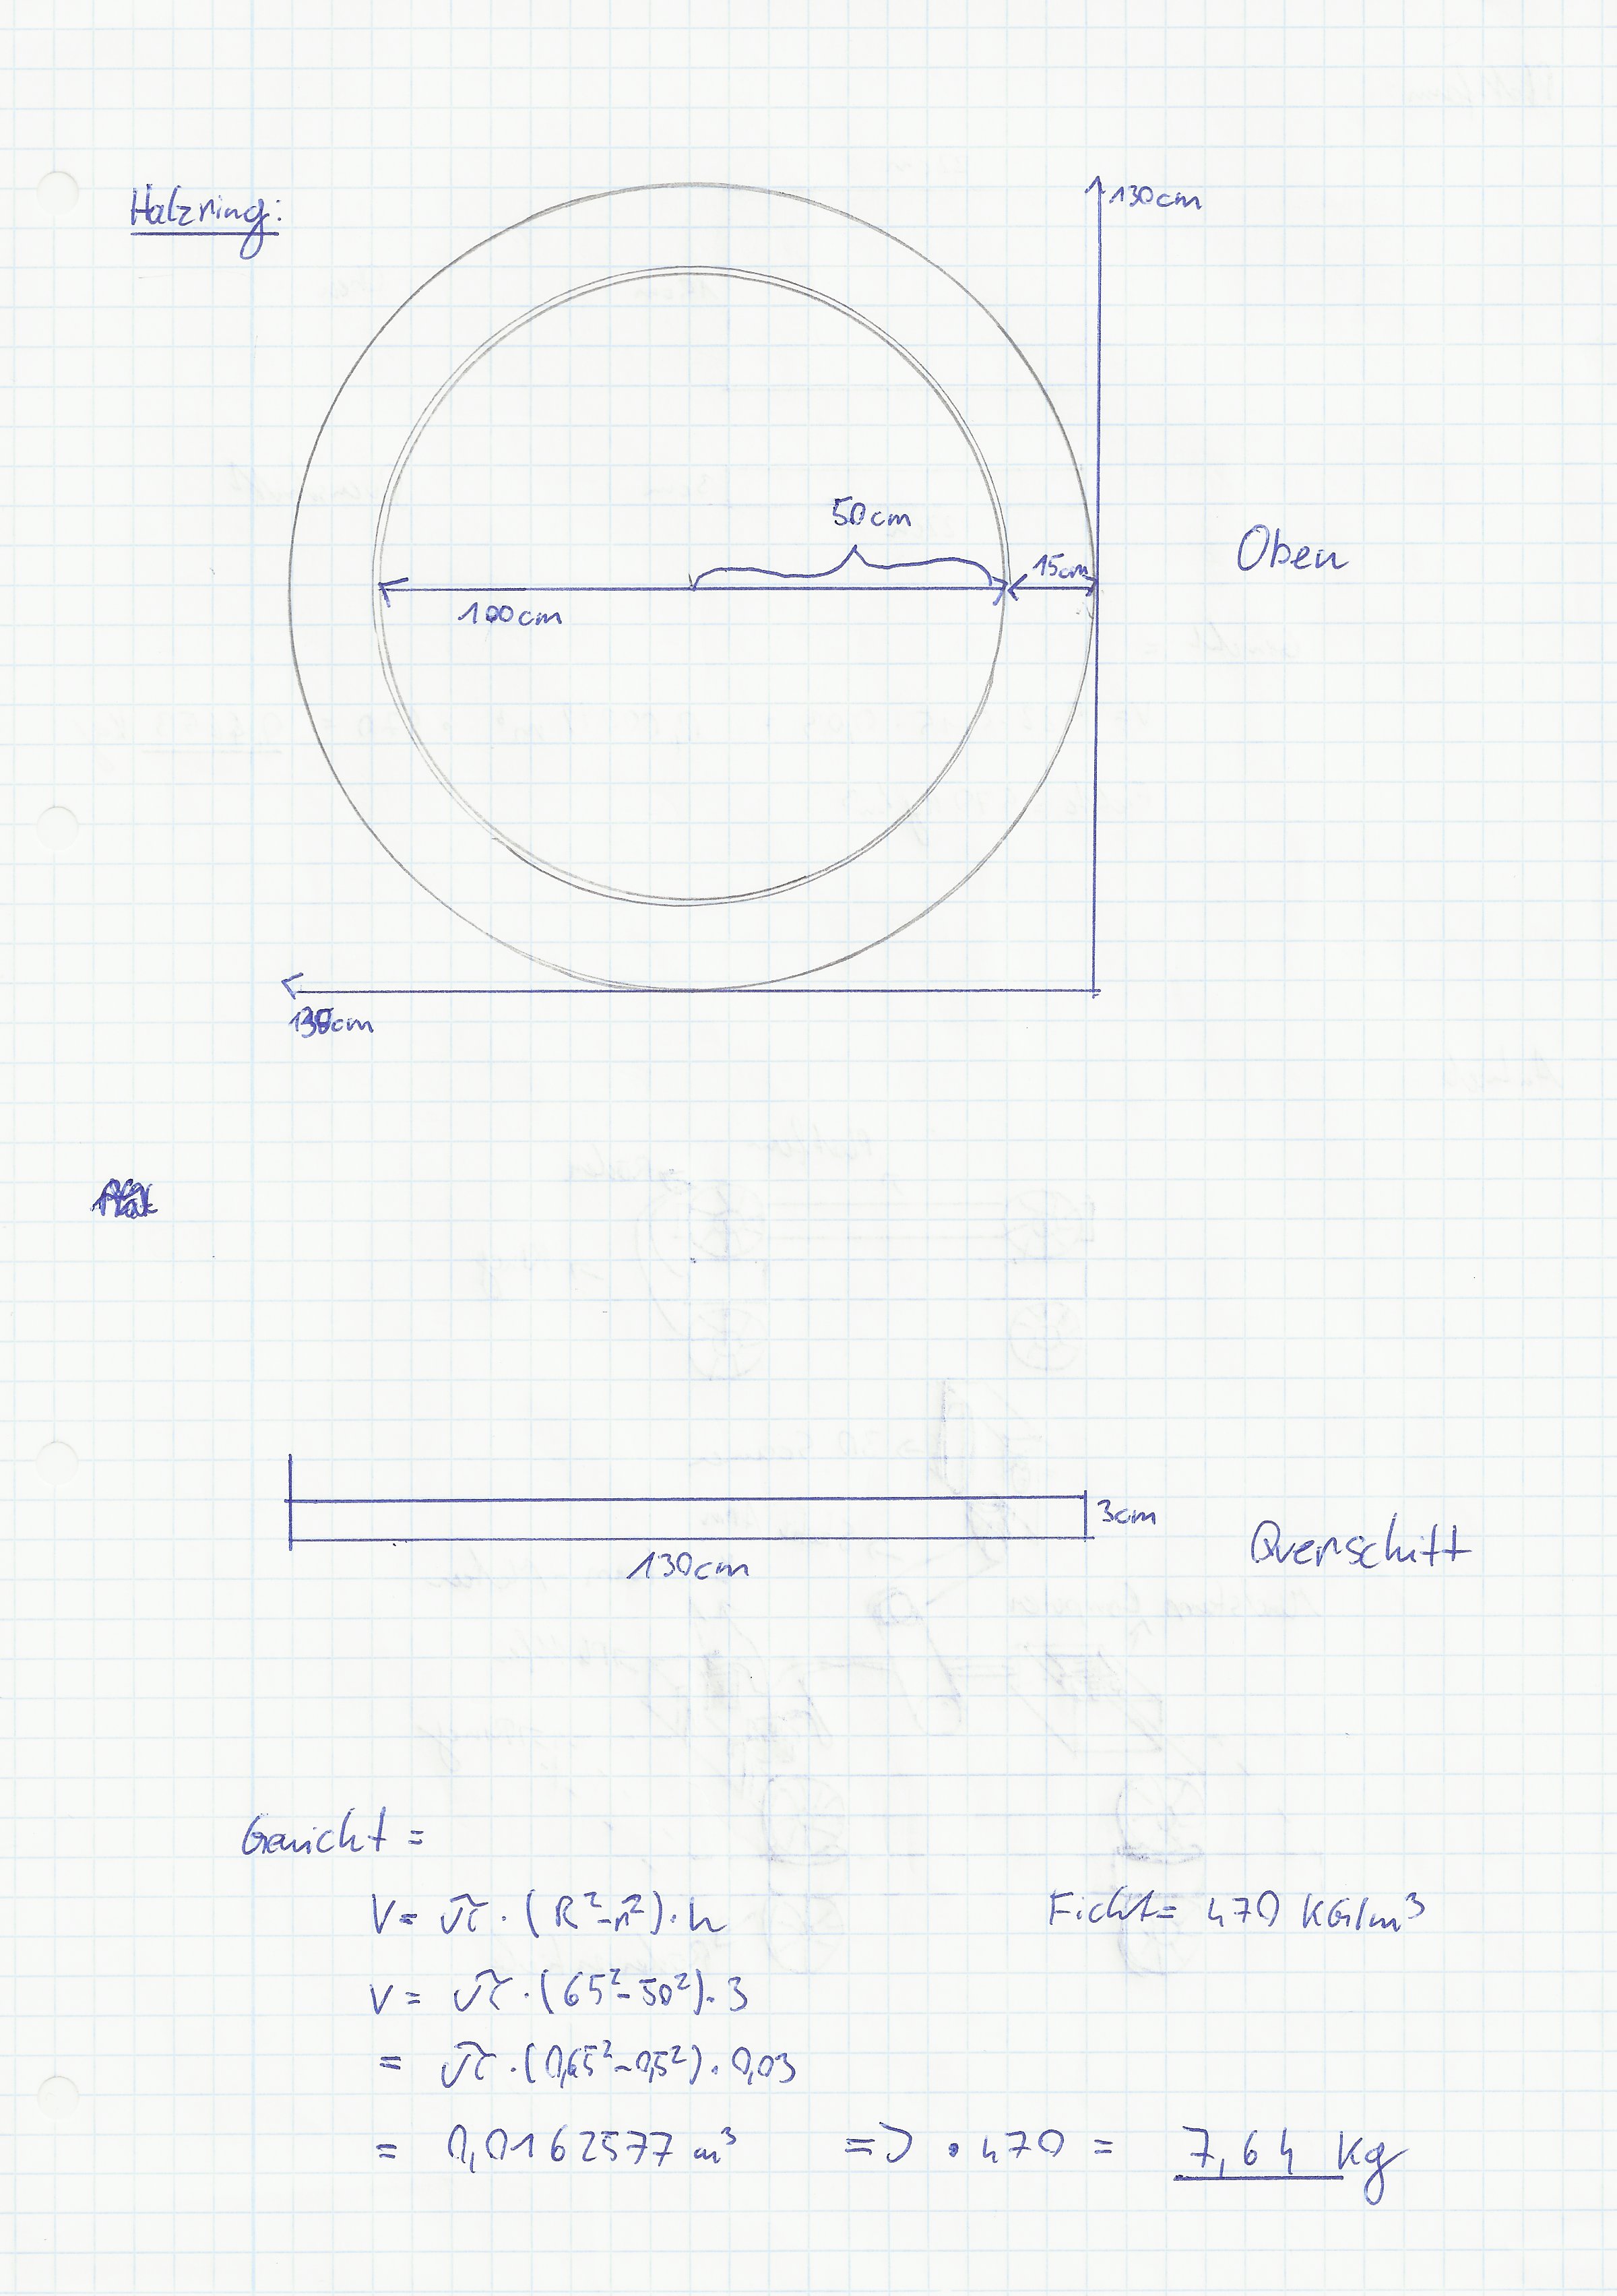 Holzring:
130cm
50cm
15cm
Oben
100cm
130cm
3cm
130cm
Querschitt
Gewicht =
V = π · (R²-r²) · h
Ficht= 470 KG/m³
V = π · (65²-50²) · 3
= π · (0,65²-0,5²) · 0,03
= 0,0162577 m³ => · 470 = 7,64 kg